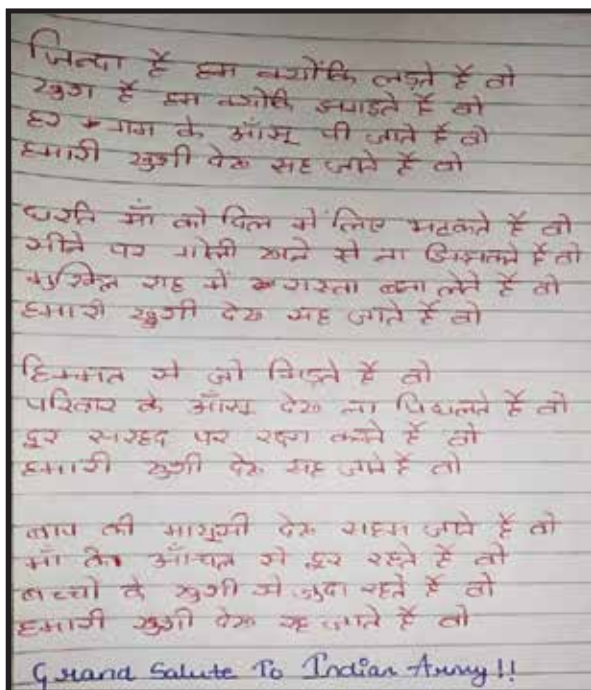 जिन्दा है हम क्योंकि लड़ते है वो
खुश है हम क्योंकि झगड़ते है वो
हर गम के आँसू पी जाते है वो
हमारी खुशी देख सह जाते है वो
धरति माँ को दिल मे लिए भटकते है वो
सीने पर गोली खाने से ना झिझकते है वो
मुश्किल राह में रास्ता बना लेते है वो
हमारी खुशी देख सह जाते है वो
हिम्मत से जो भिड़ते है वो
परिवार के आँसू देख ना पिघलते है वो
दूर सरहद पर रक्षा करते है वो
हमारी खुशी देख सह जाते है वो
बाप की मायुसी देख सहम जाते है वो
माँ के आँचल से दूर रहते है वो
बच्चों के खुशी से जुदा रहते है वो
हमारी खुशी देख सह जाते है वो
Grand Salute To Indian Army!!